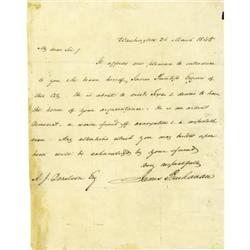 Washington 26 March 1845
My dear Sir/
It affords me pleasure to introduce
to you the bearer hereof, James Esquire of
this City. He is about to visit Texas & desires to have
the honor of your acquaintance. He is an ardent
democrat, a warm friend of annexation & a respectable
man. Any attentions which you may bestow upon
him will be acknowledged by your friend
Very respectfully
James Buchanan
A. J. Donelson Esq